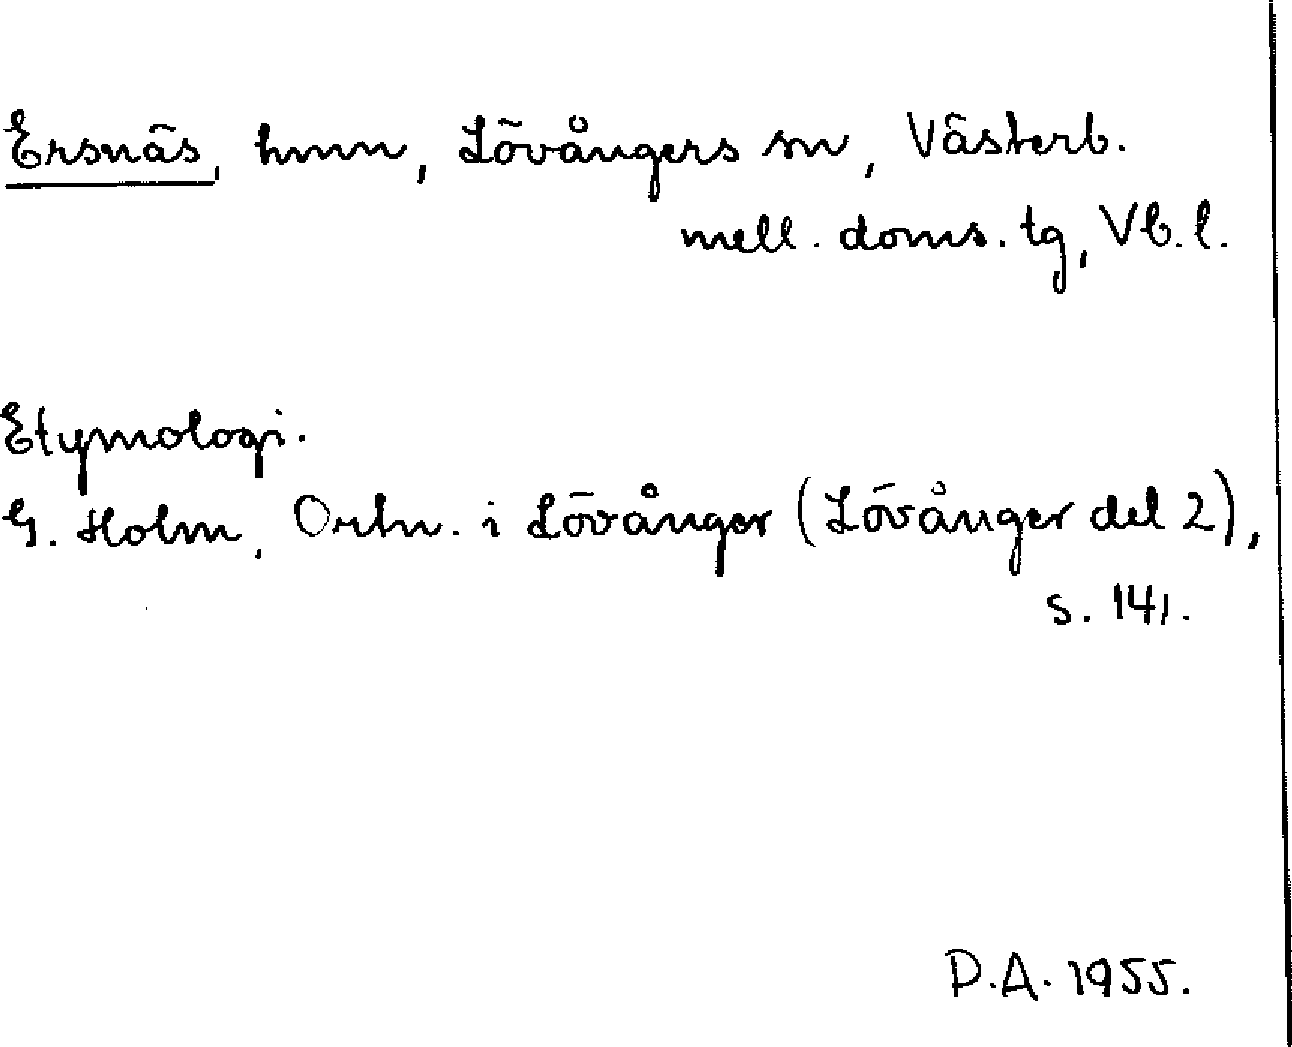 Ersnäs, hmn, Lövångers sn, Västerb.
mell. doms. tg, Vb. l.
Etymologi.
G. Holm, Ortn. i Lövånger (Lövånger del 2),
s. 141.
D.A. 1955.